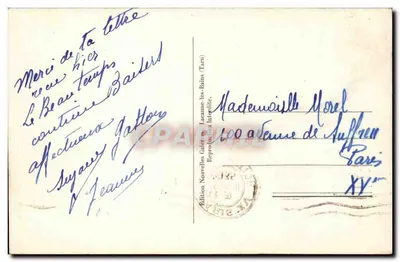 Merci de ta lettre
reçue hier
Le Beau temps
continue Baisers
affectueux
Suzanne Gaston
Jeanne
Edition Nouvelles Galeries Lacaune-les-Bains (Tarn)
Reproduction Interdite.
Mademoiselle Morel
100 avenue de Suffren
Paris
XVème